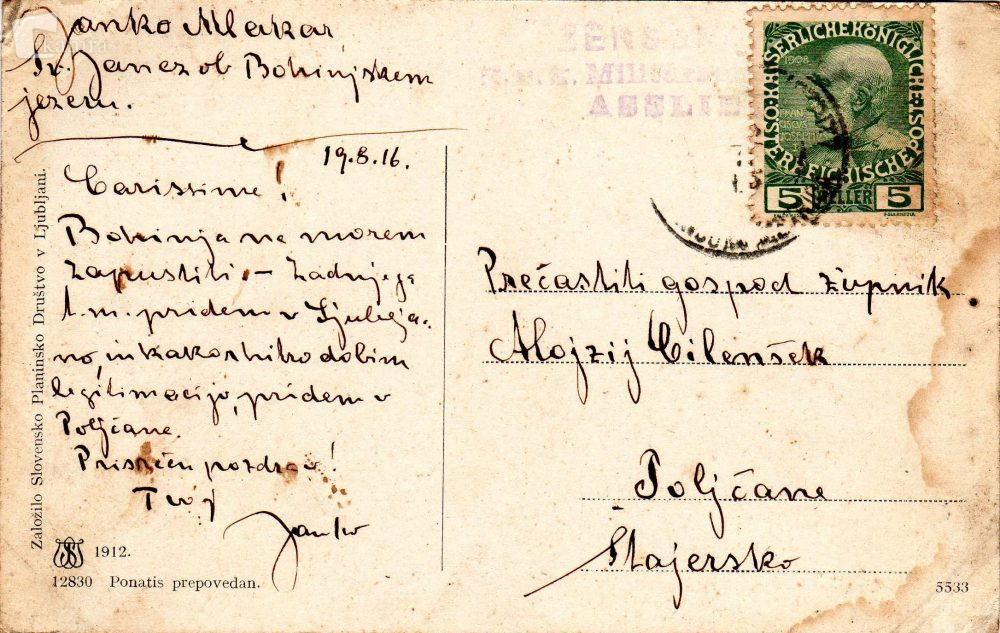 Janko Mlakar
Sv. Janez ob Bohinjskem
jezeru.
19.8.16.
Carissime!
Bohinja ne morem
zapustiti – Zadnjega
t. m. pridem v Ljublja-
no, in kakor hitro dobim
legitimacijo, pridem v
Poljčane.
Prisrčen pozdrav!
Tvoj
Janko
Založilo Slovensko Planinsko Društvo v Ljubljani.
1912.
12830 Ponatis prepovedan.
ZENSUR
K.u.k. Militär
ASSLIN
KAISERLICHE KÖNIGLICHE
ÖSTERREICHISCHE POST
1908
FRANZ
JOSEPH I
5 HELLER 5
Prečastiti gospod župnik
Alojzij Cilenšek
Poljčane
Štajersko
5533